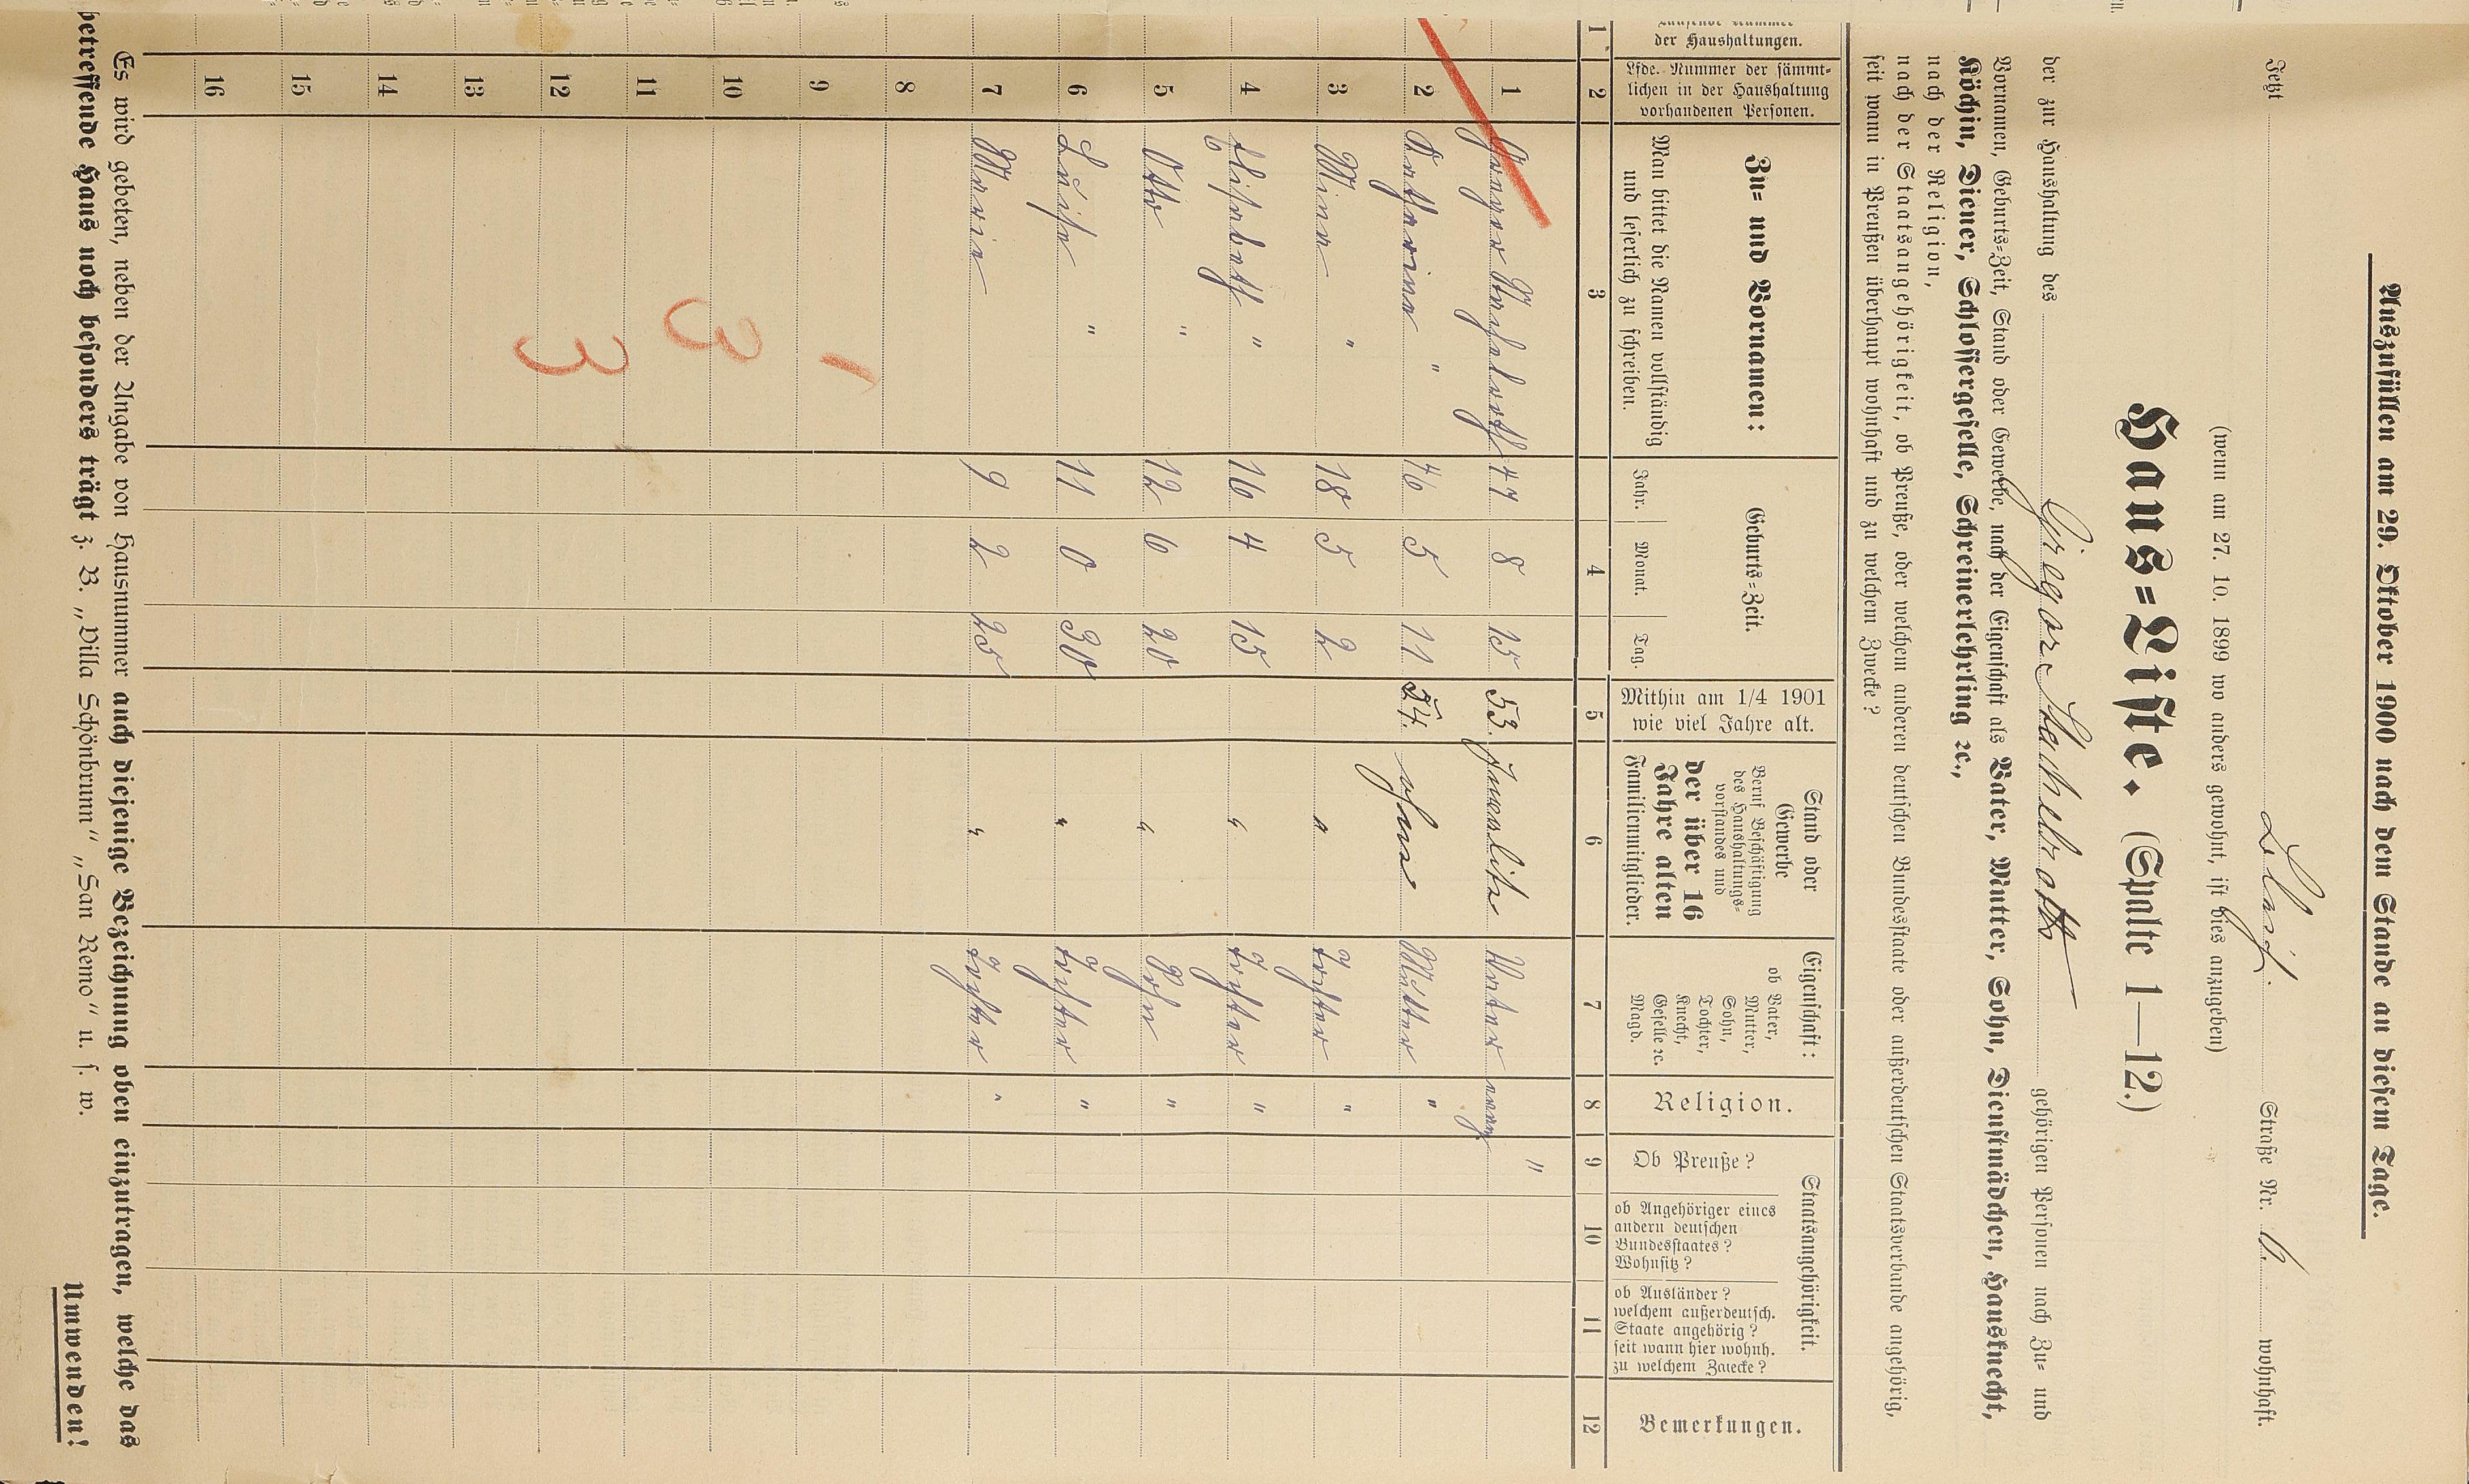 Auszufüllen am 29. Oktober 1900 nach dem Stande an diesem Tage.
Jetzt Straße Nr. 6. wohnhaft.
(wenn am 27. 10. 1899 wo anders gewohnt, ist dies anzugeben)
Haus=Liste. (Spalte 1—12.)
der zur Haushaltung des Gregor gehörigen Personen nach Zu= und
Vornamen, Geburts=Zeit, Stand oder Gewerbe, nach der Eigenschaft als Vater, Mutter, Sohn, Dienstmädchen, Hausknecht,
Köchin, Diener, Schlossergeselle, Schreinerlehrling ꝛc.,
nach der Religion,
nach der Staatsangehörigkeit, ob Preuße, oder welchem anderen deutschen Bundesstaate oder außerdeutschen Staatsverbande angehörig,
seit wann in Preußen überhaupt wohnhaft und zu welchem Zwecke?
Laufende Nummer
der Haushaltungen.
Lfde. Nummer der sämmt-
lichen in der Haushaltung
vorhandenen Personen.
Zu= und Vornamen:
Man bittet die Namen vollständig
und leserlich zu schreiben.
Geburts=Zeit.
Jahr. Monat. Tag.
Mithin am 1/4 1901
wie viel Jahre alt.
Stand oder
Gewerbe
Beruf Beschäftigung
des Haushaltungs-
vorstandes und
der über 16
Jahre alten
Familienmitglieder.
Eigenschaft:
ob Vater,
Mutter,
Sohn,
Tochter,
Knecht,
Geselle ꝛc.
Magd.
Religion.
Staatsangehörigkeit.
Ob Preuße?
ob Angehöriger eines
andern deutschen
Bundesstaates?
Wohnsitz?
ob Ausländer?
welchem außerdeutsch.
Staate angehörig?
seit wann hier wohnh.
zu welchem Zwecke?
Bemerkungen.
1 2 3 4 5 6 7 8 9 10 11 12
1 Gregor 47 8 15 53. Invalide Vater evang "
2 Katharina " 46 5 11 54. ohne Mutter "
3 Mina " 18 5 2 " Tochter "
4 Elisabeth " 16 4 15 " Tochter "
5 Otto " 12 6 20 " Sohn "
6 Luise " 11 0 30 " Tochter "
7 Maria 9 2 25 " Tochter "
8
9
10
11
12
13
14
15
16
1
3
3
Es wird gebeten, neben der Angabe von Hausnummer auch diejenige Bezeichnung oben einzutragen, welche das
betreffende Haus noch besonders trägt z. B. „Villa Schönbrunn“ „San Remo“ u. s. w.
Umwenden!